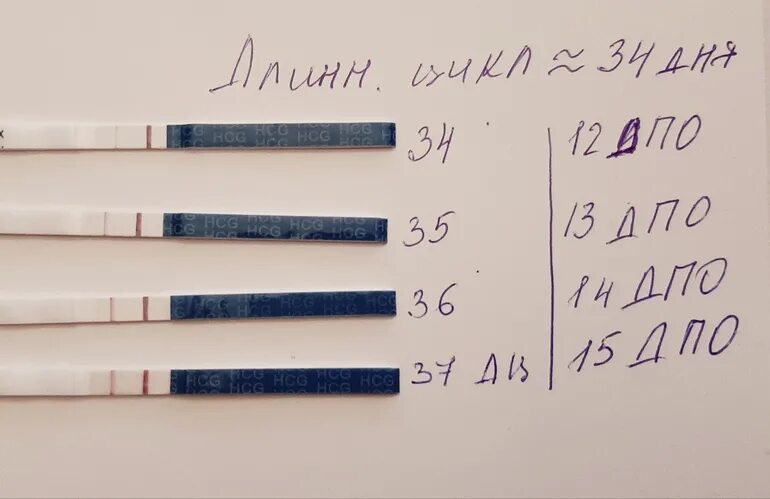 Длинн. цикл ≈ 34 дня
HCG HCG HCG HCG 34 12 ДПО
HCG HCG HCG HCG 35 13 ДПО
HCG HCG HCG HCG 36 14 ДПО
HCG HCG HCG HCG 37 ДЦ 15 ДПО